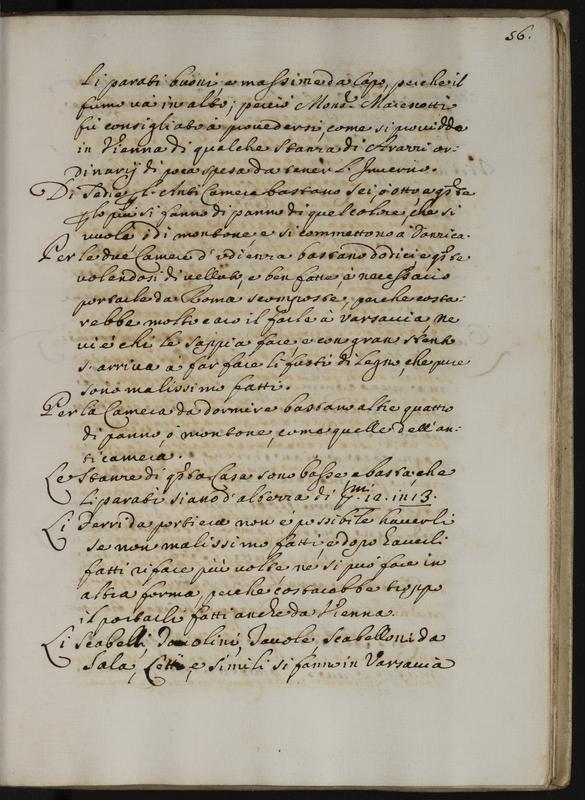 56.
li parati buoni, e massime da capo, perche il
fumo và in alto; perciò Mons.r Marescotti
fù consigliato à provedersi, come si providde
in Vienna di qualche stanza di Arazzi or-
dinarij di poca spesa da tener l'Inverno.
Di Sedie p l'Anticamera bastano sei, ò otto, e q.ste
p lo più si fanno di panno di quel colore, che si
vuole, ò di montone, e si commettono a
Per le due Camere d'udienza bastano dodici, e q.ste
volendosi di velluto, e ben fatte, è necessario
portarle da Roma scomposte, perche costa-
rebbe molto caro il farle à Varsavia, ne
vi è chi le sappia fare, e con gran stento
s'arriva à far fare li fusti di legno, che pure
sono malissimo fatti.
Per la Camera da dormire bastano altre quattro
di panno, ò montone, come quelle dell'an-
ticamera.
Le stanze di q.sta Casa sono basse, e basta, che
li parati siano d'alterza di pmi 12. in 13.
Li ferri da portiera non è possibile haverli
se non malissimo fatti, e dopo haverli
fatti rifare più volte ne si può fare in
altra forma, perche costarebbe troppo
il portarli fatti anche da Vienna.
Li Scabelli Tavolini, Tavole Scabelloni da
Sala, Letti, e simili si fanno in Varsavia